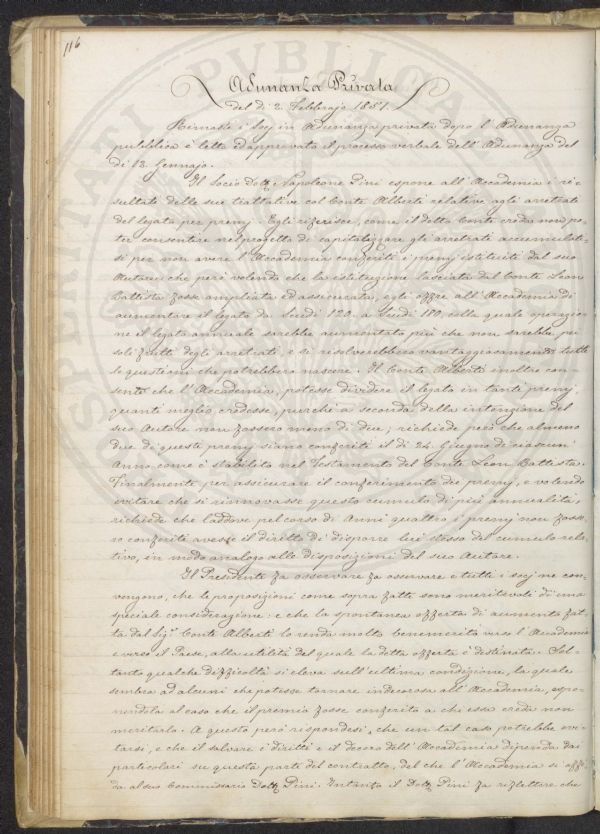 116
Adunanza Privata
del dì 2. Febbrajo 1851.
Rimasti i Socj in Adunanza privata dopo l'Adunanza
pubblica è letto ed approvato il processo verbale dell'Adunanza del
dì 13. Gennajo.
Il Socio Dott. Napoleone Pini espone all'Accademia i re-
sultati delle sue trattative col Conte Alberti relative agli arretrati
del legato per premj. Egli riferisce, come il detto Conte creda non po-
ter consentire nel progetto di capitalizzare gli arretrati accumulati-
si per non avere l'Accademia conferiti i premj istituiti dal suo
Autore: che però volendo che la istituzione lasciata dal Conte Leon
Battista fosse ampliata ed assicurata, egli offre all'Accademia di
aumentare il legato da Scudi 120. a Scudi 180. colla quale operazio-
ne il legato annuale sarebbe aumentato più che non sarebbe pei
soli frutti degli arretrati, e si risolverebbero vantaggiosamente tutte
le questioni che potrebbero nascere. Il Conte Alberti inoltre con-
sente che l'Accademia, potesse dividere il legato in tanti premj,
quanti meglio credesse, purchè a seconda della intenzione del
suo Autore non fossero meno di due; richiede però che almeno
due di questi premj siano conferiti il dì 24. Giugno di ciascun'
Anno come è stabilito nel Testamento del Conte Leon Battista.
Finalmente per assicurare il conferimento dei premj, e volendo
evitare che si rinnovasse questo cumulo di più annualità,
richiede che laddove pel corso di Anni quattro i premj non fosse-
ro conferiti avesse il diritto di disporre lui stesso del cumulo rela-
tivo, in modo analogo alle disposizioni del suo Autore.
Il Presidente fa osservare fa osservare e tutti i socj ne con-
vengono, che le proposizioni come sopra fatte sono meritevoli di una
speciale considerazione: e che la spontanea offerta di aumento fat-
ta dal Sig.r Conte Alberti lo renda molto benemerito verso l'Accademia
e verso il Paese, alla utilità del quale la detta offerta è destinata. Sol-
tanto qualche difficoltà si eleva sull'ultima condizione, la quale
sembra ad alcuni che potesse tornare indecorosa all'Accademia, espo-
nendola al caso che il premio fosse conferito a chi essa creda non
meritarlo. A questo però rispondesi, che un tal caso potrebbe evi-
tarsi, e che il salvare i diritti e il decoro dell'Accademia dipenda dai
particolari su questa parte del contratto, del che l'Accademia si affi-
da al suo Commissario Dott. Pini. Intanto il Dott. Pini fa riflettere che